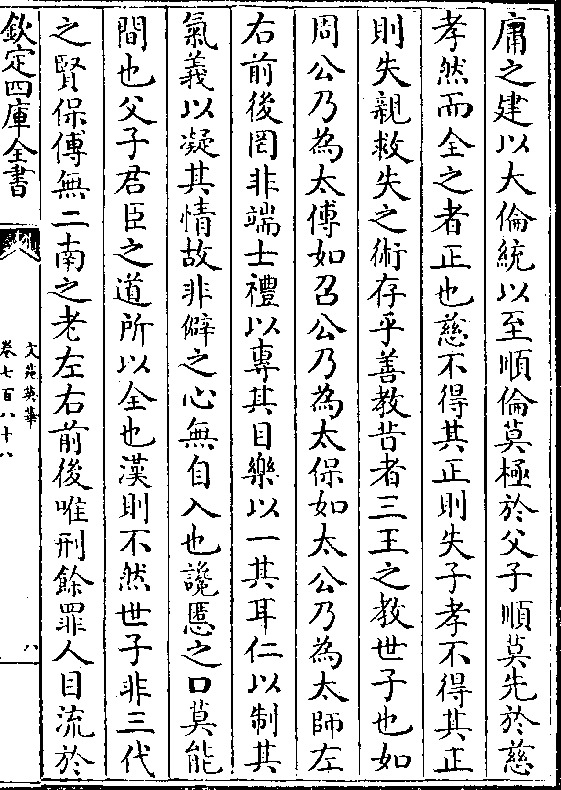 庸之建以大倫統以至順倫莫極於父子順莫先於慈
孝然而全之者正也慈不得其正則失子孝不得其正
則失親救失之術存乎善教昔者三王之教世子也如
周公乃為太傅如召公乃為太保如太公乃為太師左
右前後罔非端士禮以專其目樂以一其耳仁以制其
氣義以凝其情故非僻之心無自入也讒慝之口莫能
間也父子君臣之道所以全也漢則不然世子非三代
之賢保傅無二南之老左右前後唯刑餘罪人目流於
欽定四庫全書
文苑英華
卷七百八十八
八